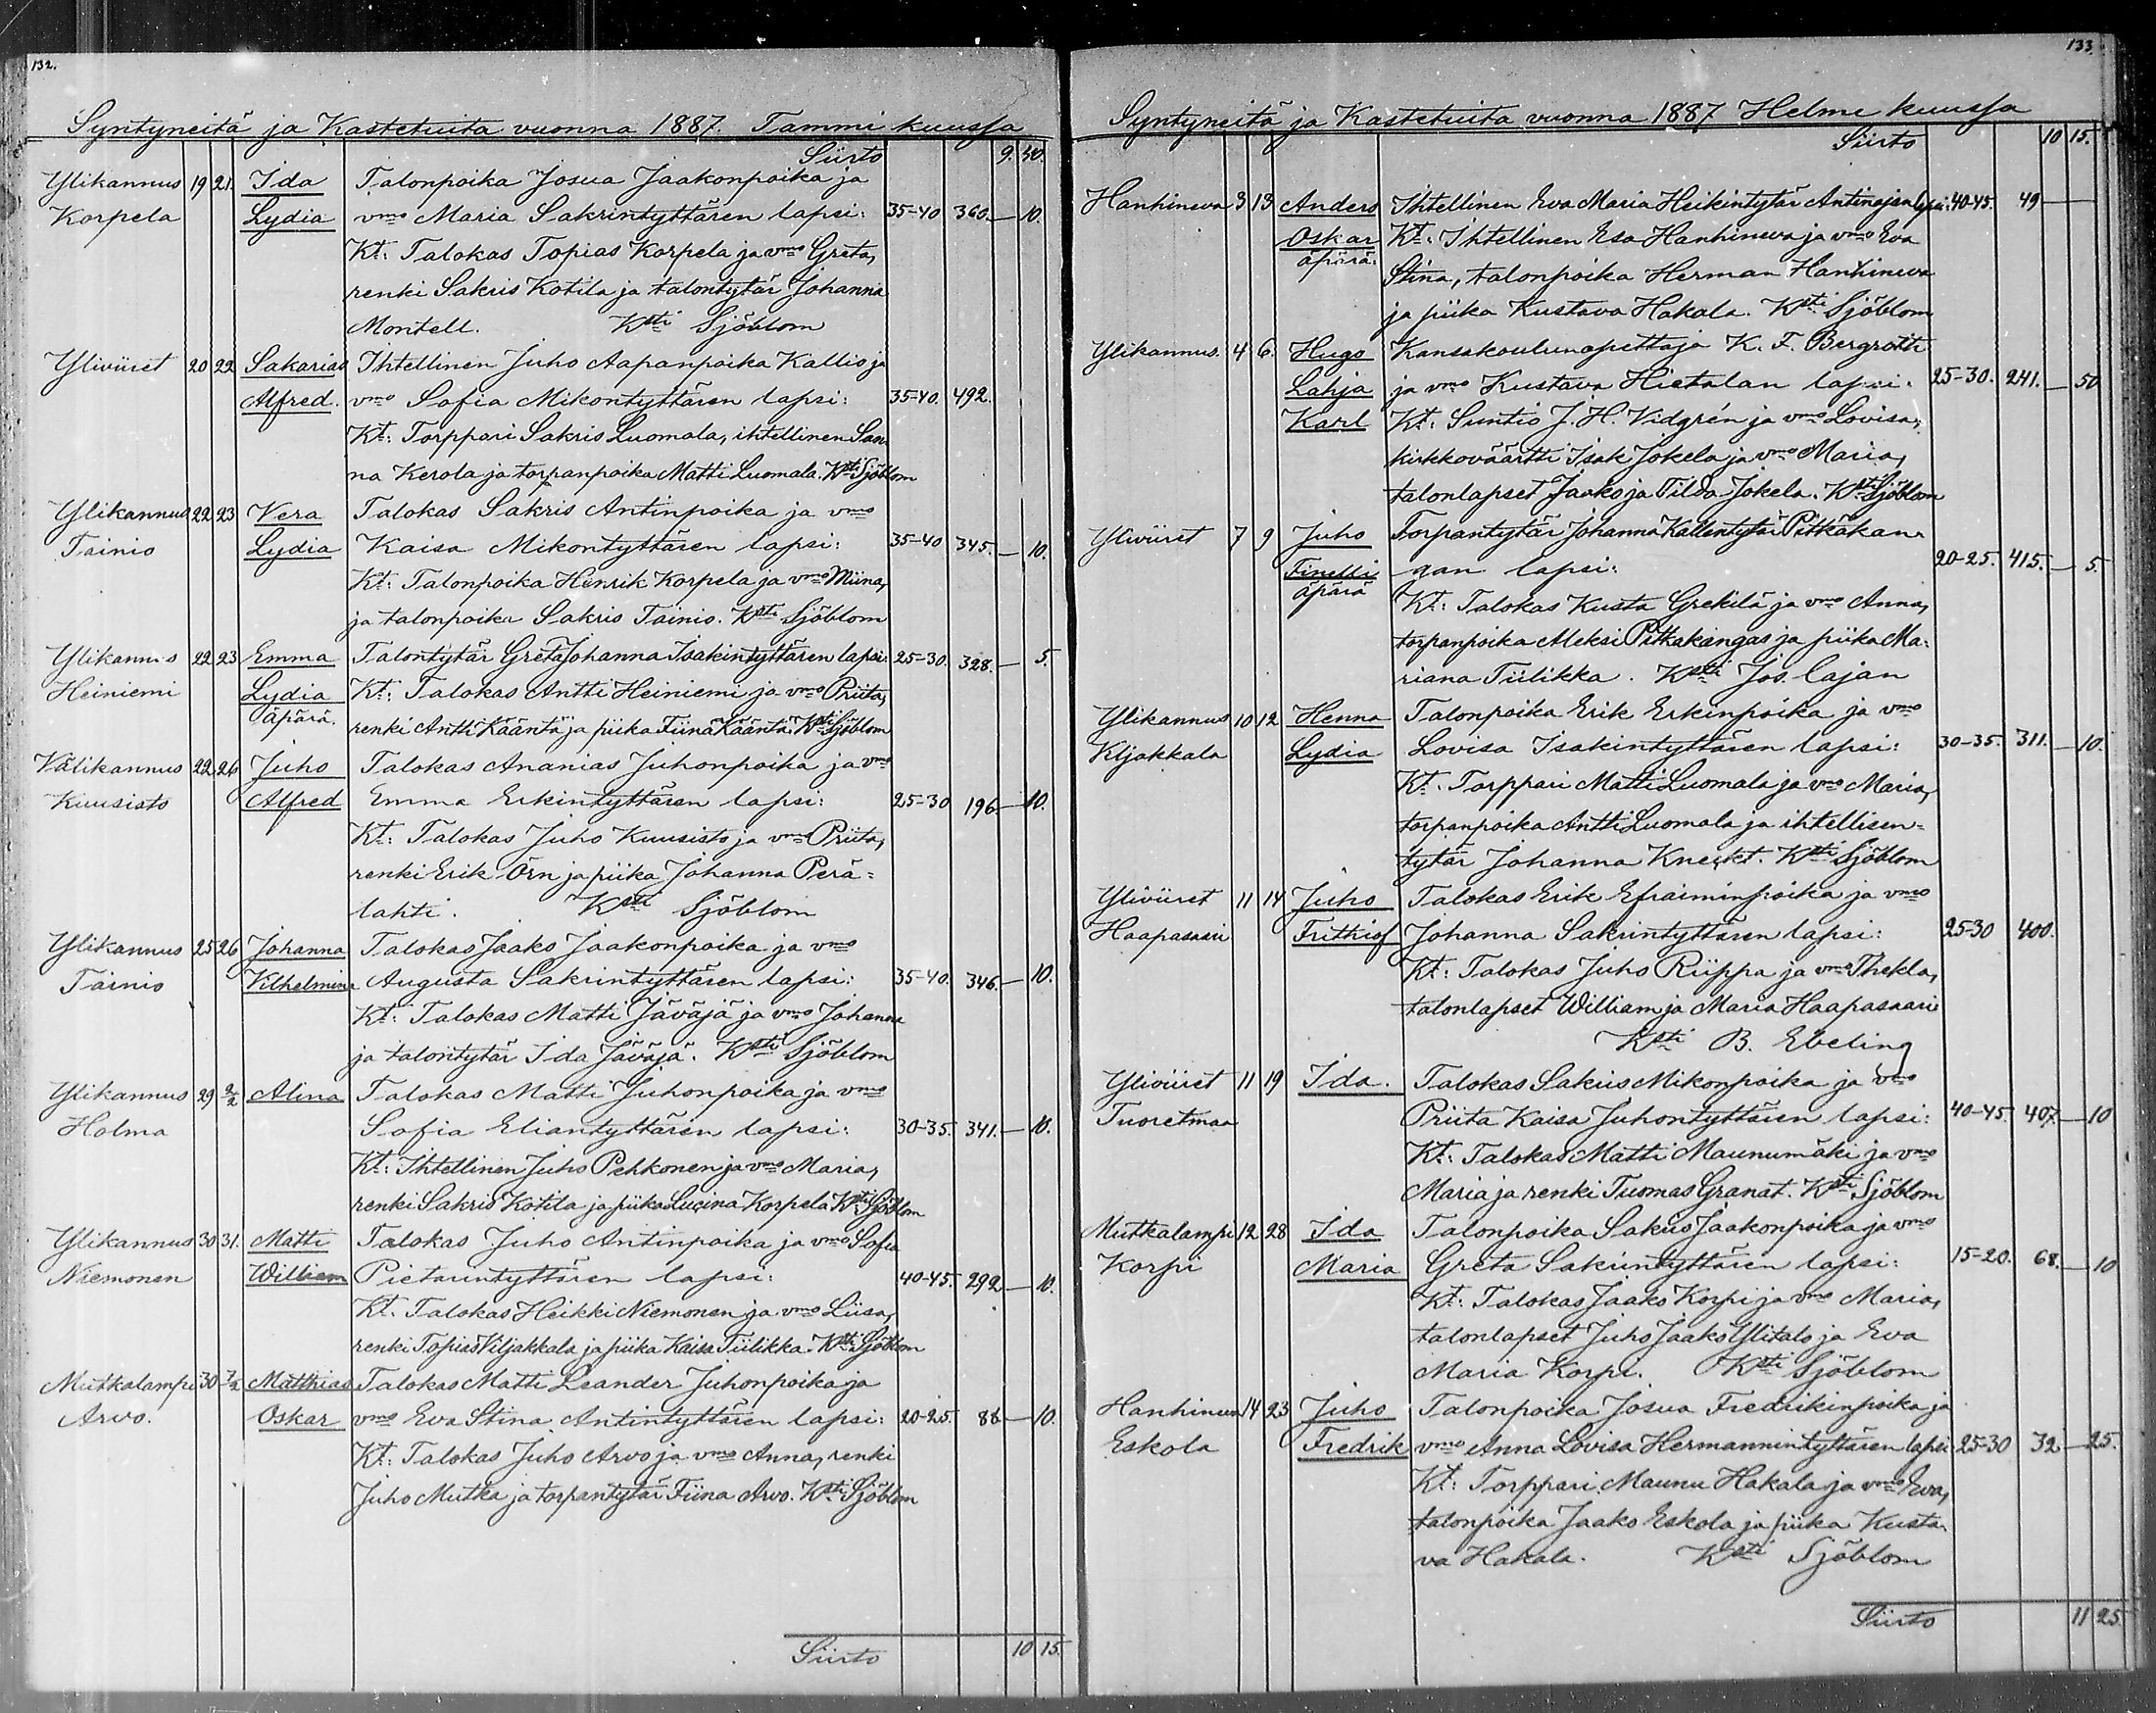 132.
Syntyneitä ja Kastetuita vuonna 1887. Tammi kuussa
Siirto 9. 40.
Ylikannus 19 21. Ida Talonpoika Josua Jaakonpoika ja
Korpela Lydia vmo Maria Sakrintyttären lapsi: 35-40 360. — 10.
Kt: Talokas Topias Korpela ja vmo Greta,
renki Sakris Kotila ja talontytär Johanna
Montell. Ksti Sjöblom
Yliviiret 20 22 Sakarias Ihtellinen Juho Aapanpoika Kallio ja
Alfred. vmo Sofia Mikontyttären lapsi: 35-40. 492.
Kt: Torppari Sakris Luomala, ihtellinen San
na Kerola ja torpanpoika Matti Luomala. Ksti Sjöblom
Ylikannus 22 23 Vera Talokas Sakris Antinpoika ja vmo
Tainio Lydia Kaisa Mikontyttären lapsi: 35-40 345. — 10.
Kt: Talonpoika Henrik Korpela ja vmo Miina,
ja talonpoika Sakris Tainio. Ksti Sjöblom
Ylikannus 22 23 Emma Talontytär Greta Johanna Isakintyttären lapsi: 25-30. 328. — 5.
Heiniemi Lydia Kt: Talokas Antti Heiniemi ja vmo Priita,
äpärä. renki Antti Kääntä ja piika Fiina Kääntä. Ksti Sjöblom
Välikannus 22 26 Juho Talokas Ananias Juhonpoika ja vmo
Kuusisto Alfred Emma Erkintyttären lapsi: 25-30 196. — 10.
Kt: Talokas Juho Kuusisto ja vmo Priita,
renki Erik Örn ja piika Johanna Perä=
lahti. Ksti Sjöblom
Ylikannus 25 26 Johanna Talokas Jaako Jaakonpoika ja vmo
Tainio Vilhelmina Augusta Sakrintyttären lapsi: 35-40. 346. — 10.
Kt: Talokas Matti Jäväjä ja vmo Johanna
ja talontytär Ida Jäväjä. Ksti Sjöblom
Ylikannus 29 2/2 Alina Talokas Matti Juhonpoika ja vmo
Holma Sofia Eliantyttären lapsi: 30-35. 341. — 10.
Kt: Ihtellinen Juho Pehkonen ja vmo Maria,
renki Sakris Kotila ja piika Lucina Korpela Ksti Sjöblom
Ylikannus 30 31. Matti Talokas Juho Antinpoika ja vmo Sofia
Niemonen William Pietarintyttären lapsi: 40-45. 292 — 10.
Kt: Talokas Heikki Niemonen ja vmo Liisa,
renki Topias Viljakkala ja piika Kaisa Tiilikka. Ksti Sjöblom
Mutkalampi 30 Matthias Talokas Matti Leander Juhonpoika ja
Arvo. Oskar vmo Eva Stina Antintyttären lapsi: 20-25. 88 — 10.
Kt: Talokas Juho Arvo ja vmo Anna, renki
Juho Mutka ja torpantytär Fiina Arvo. Ksti Sjöblom
Siirto 10 15.
133.
Syntyneitä ja Kastetuita vuonna 1887 Helmi kuussa
Siirto 10 15.
Hanhineva 3 13 Anders Ihtellinen Eva Maria Heikintytär Antinojan lapsi: 40-45. 49 —
Oskar Kt: Ihtellinen Esa Hanhineva ja vmo Eva
äpärä: Stina, talonpoika Herman Hanhineva
ja piika Kustava Hakala. Ksti Sjöblom
Ylikannus. 4 6. Hugo Kansakoulunopettaja K. F. Bergroth
Lahja ja vmo Kustava Hietalan lapsi. 25-30. 241. — 50
Karl Kt: Suntio J. H. Vidgrén ja vmo Lovisa,
kirkkoväärtti Isak Jokela ja vmo Maria,
talonlapset Jaako ja Tilda Jokela. Ksti Sjöblom
Yliviiret 7 9 Juho Torpantytär Johanna Kallentytär Pitkäkan=
Finelli gan lapsi: 20-25. 415. — 5.
äpärä Kt: Talokas Kusta Grekilä ja vmo Anna,
torpanpoika Aleksi Pitkäkangas ja piika Ma=
riana Tiilikka. Ksti Jos. Cajan
Ylikannus 10 12 Henna Talonpoika Erik Erkinpoika ja vmo
Lydia Lovisa Isakintyttären lapsi: 30-35. 311. — 10.
Kt. Torppari Matti Luomala ja vmo Maria,
torpanpoika Antti Luomala ja ihtellisen=
tytär Johanna Kneckt. Ksti Sjöblom
Yliviiret 11 14 Juho Talokas Erik Efraiminpoika ja vmo
Haapasaari Frithiof Johanna Sakrintyttären lapsi: 25-30 400.
Kt: Talokas Juho Riippa ja vmo Thekla,
talonlapset William ja Maria Haapasaari
Ksti B. Ebeling
Yliviiret 11 19 Ida. Talokas Sakris Mikonpoika ja vmo
Tuoretmaa Priita Kaisa Juhontyttären lapsi: 40-45. 407. — 10
Kt: Talokas Matti Maunumäki ja vmo
Maria ja renki Tuomas Granat. Ksti Sjöblom
Mutkalampi 12 28 Ida Talonpoika Sakris Jaakonpoika ja vmo
Korpi Maria Greta Sakrintyttären lapsi: 15-20. 68. — 10
Kt: Talokas Jaako Korpi ja vmo Maria,
talonlapset Juho Jaako Ylitalo ja Eva
Maria Korpi. Ksti Sjöblom
Hanhineva 14 23 Juho Talonpoika Josua Fredrikinpoika ja
Eskola Fredrik vmo Anna Lovisa Hermannintyttären lapsi 25-30 32 — 25.
Kt: Torppari Maunu Hakala ja vmo Eva,
talonpoika Jaako Eskola ja piika Kusta=
va Hakala. Ksti Sjöblom
Siirto 11 25